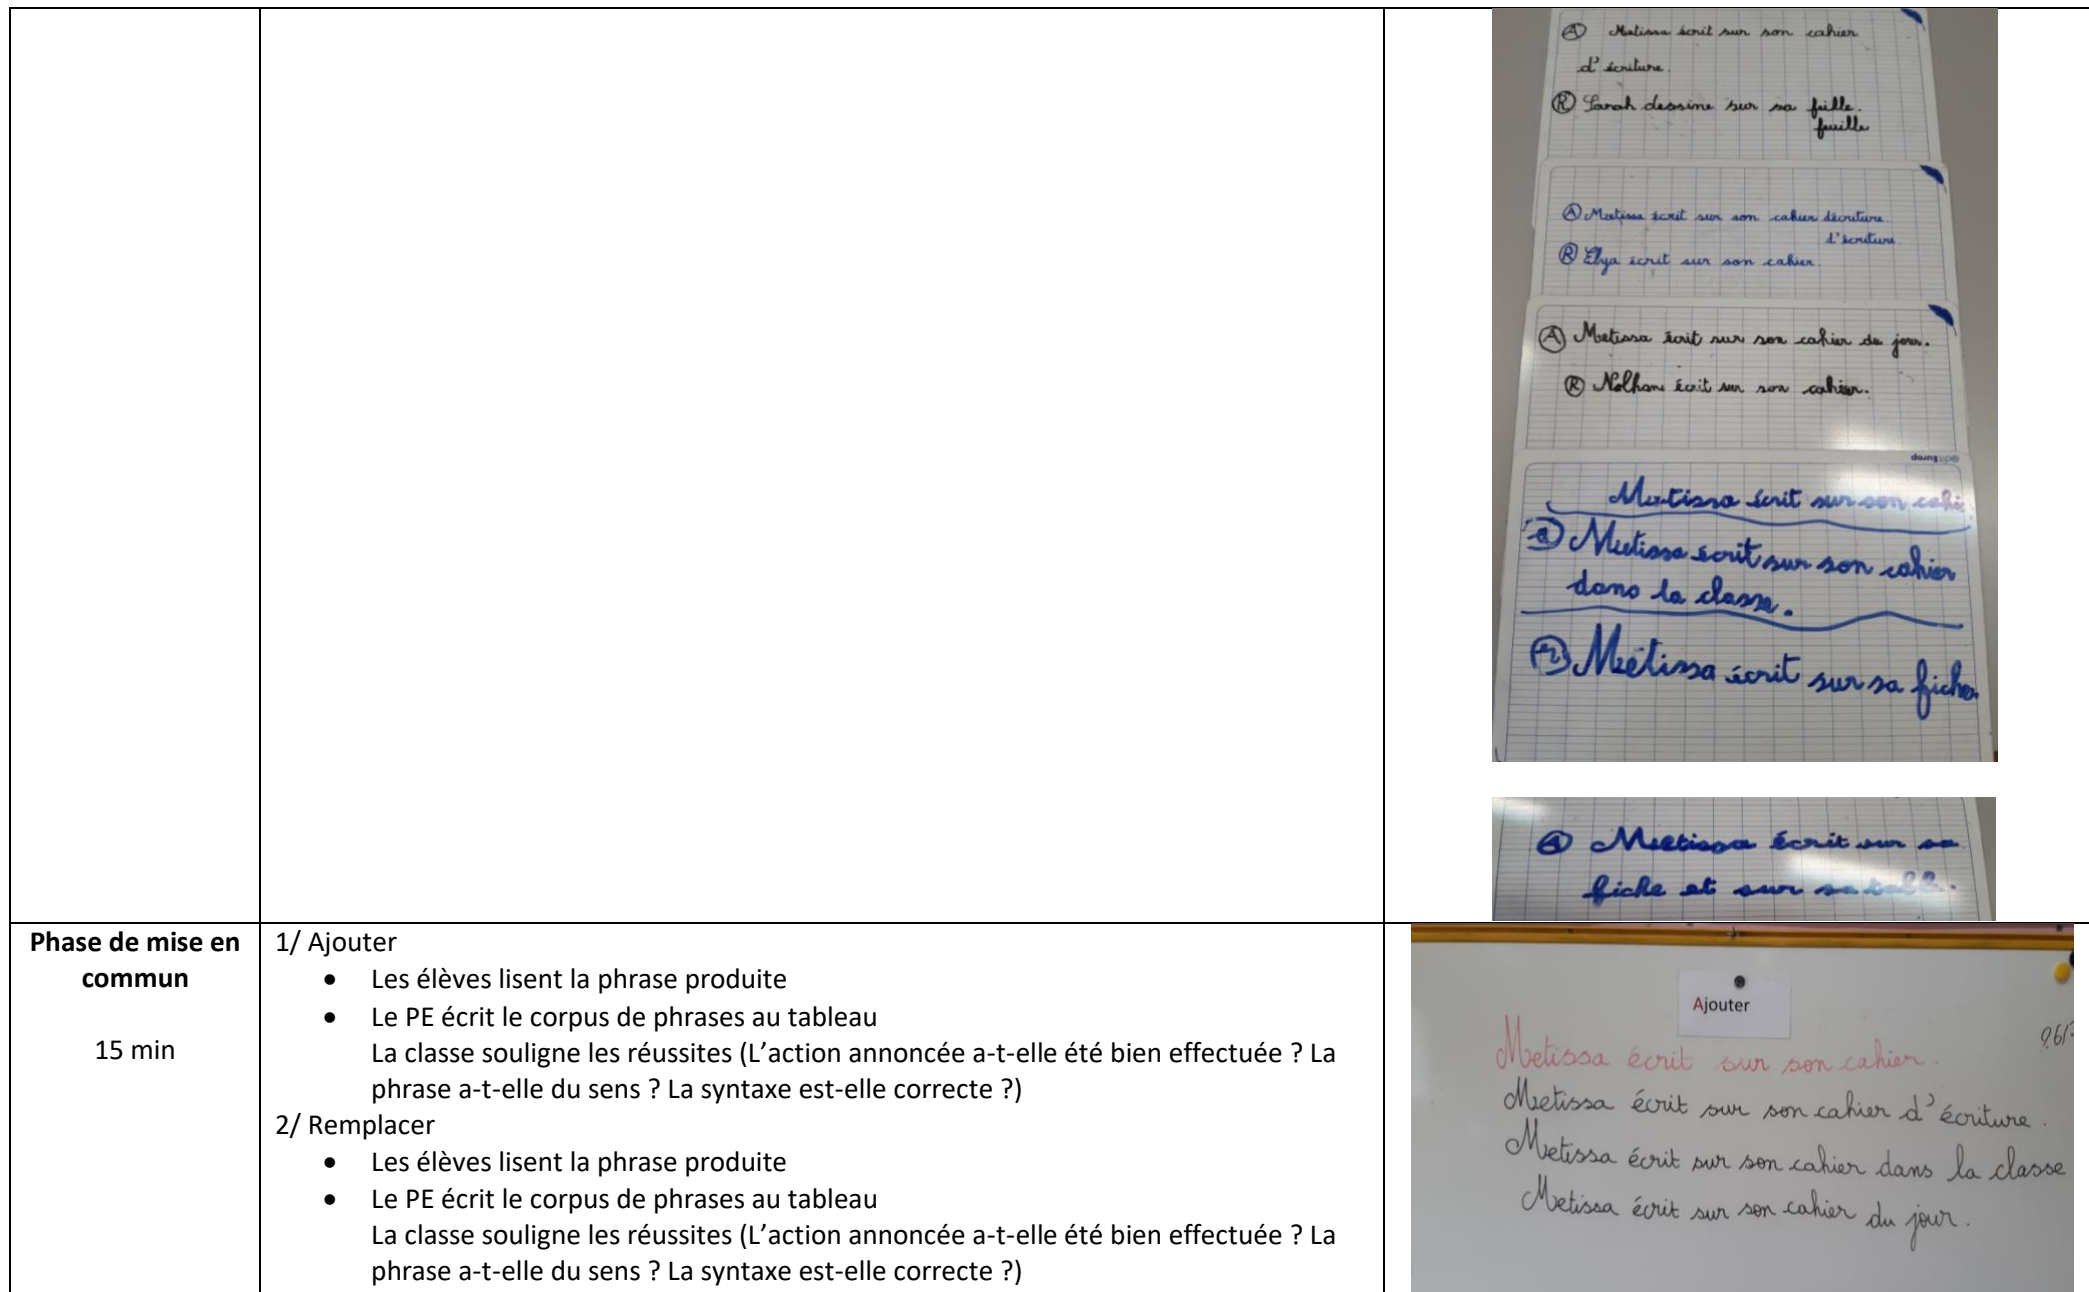 Ⓐ Metissa écrit sur son cahier
d'écriture.
Ⓡ Sarah dessine sur sa feille.
feuille
Ⓐ Metissa écrit sur son cahier décriture.
d'écriture.
Ⓡ Elya écrit sur son cahier.
Ⓐ Metissa écrit sur son cahier du jour.
Ⓡ Nolhan écrit sur son cahier.
Metissa écrit sur son cahi
ⓐ Metissa écrit sur son cahier
dans la classe.
Metissa écrit sur sa fiche.
Metissa écrit sur sa
fiche et sur sa
Phase de mise en
commun
15 min
1/ Ajouter
• Les élèves lisent la phrase produite
• Le PE écrit le corpus de phrases au tableau
La classe souligne les réussites (L'action annoncée a-t-elle été bien effectuée ? La
phrase a-t-elle du sens ? La syntaxe est-elle correcte ?)
2/ Remplacer
• Les élèves lisent la phrase produite
• Le PE écrit le corpus de phrases au tableau
La classe souligne les réussites (L'action annoncée a-t-elle été bien effectuée ? La
phrase a-t-elle du sens ? La syntaxe est-elle correcte ?)
Ajouter
Metissa écrit sur son cahier.
Metissa écrit sur son cahier d'écriture.
Metissa écrit sur son cahier dans la classe
Metissa écrit sur son cahier du jour.